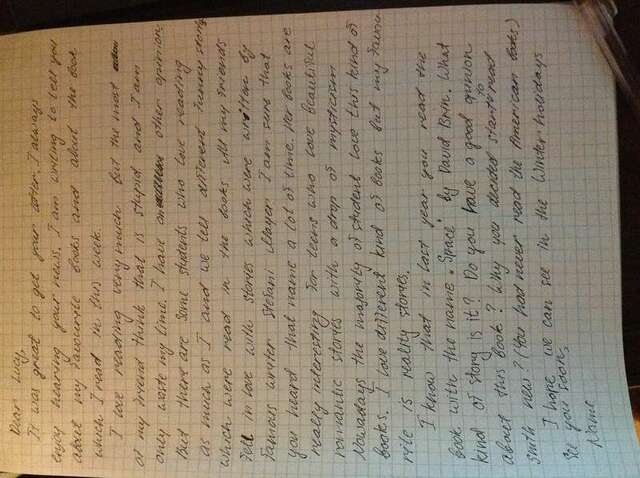 Dear Lucy,
It was great to get your letter. I always
enjoy hearing your news. I am writing to tell you
about my favourite books and about the book
which I read in this week.
I love reading very much. But the most
of my friend think that is stupid and I am
only waste my time. I have an other opinion.
But there are some students who love reading
as much as I and we tell different funny story
which were read in the books. All my friends
fell in love with stories which were written by
famous writer Stefani Mayer. I am sure that
you heard that name a lot of time. Her books are
really interesting for teens who love beautiful
romantic stories with a drop of mysticism
Nowadays the majority of student love this kind of
books. I love different kind of books but my favou-
rite is reality stories.
I know that in last year you read the
book with the name "Space" by David Brin. What
kind of story is it? Do you have a good opinion
about this book? Why you decided to start read
smth new? (You had never read the American books)
I hope we can see in the Winter holidays
See you soon,
Name